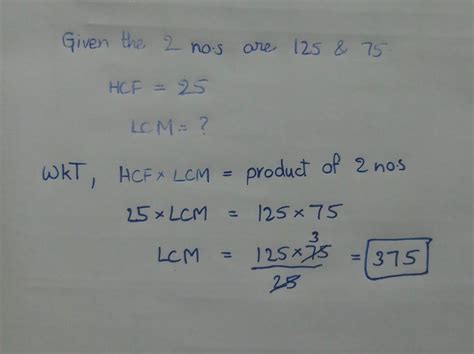 Given the 2 no.s are 125 & 75
HCF = 25
LCM = ?
WKT, HCF × LCM = product of 2 no.s
25 × LCM = 125 × 75
3
LCM = 125 × 75 = 375
25